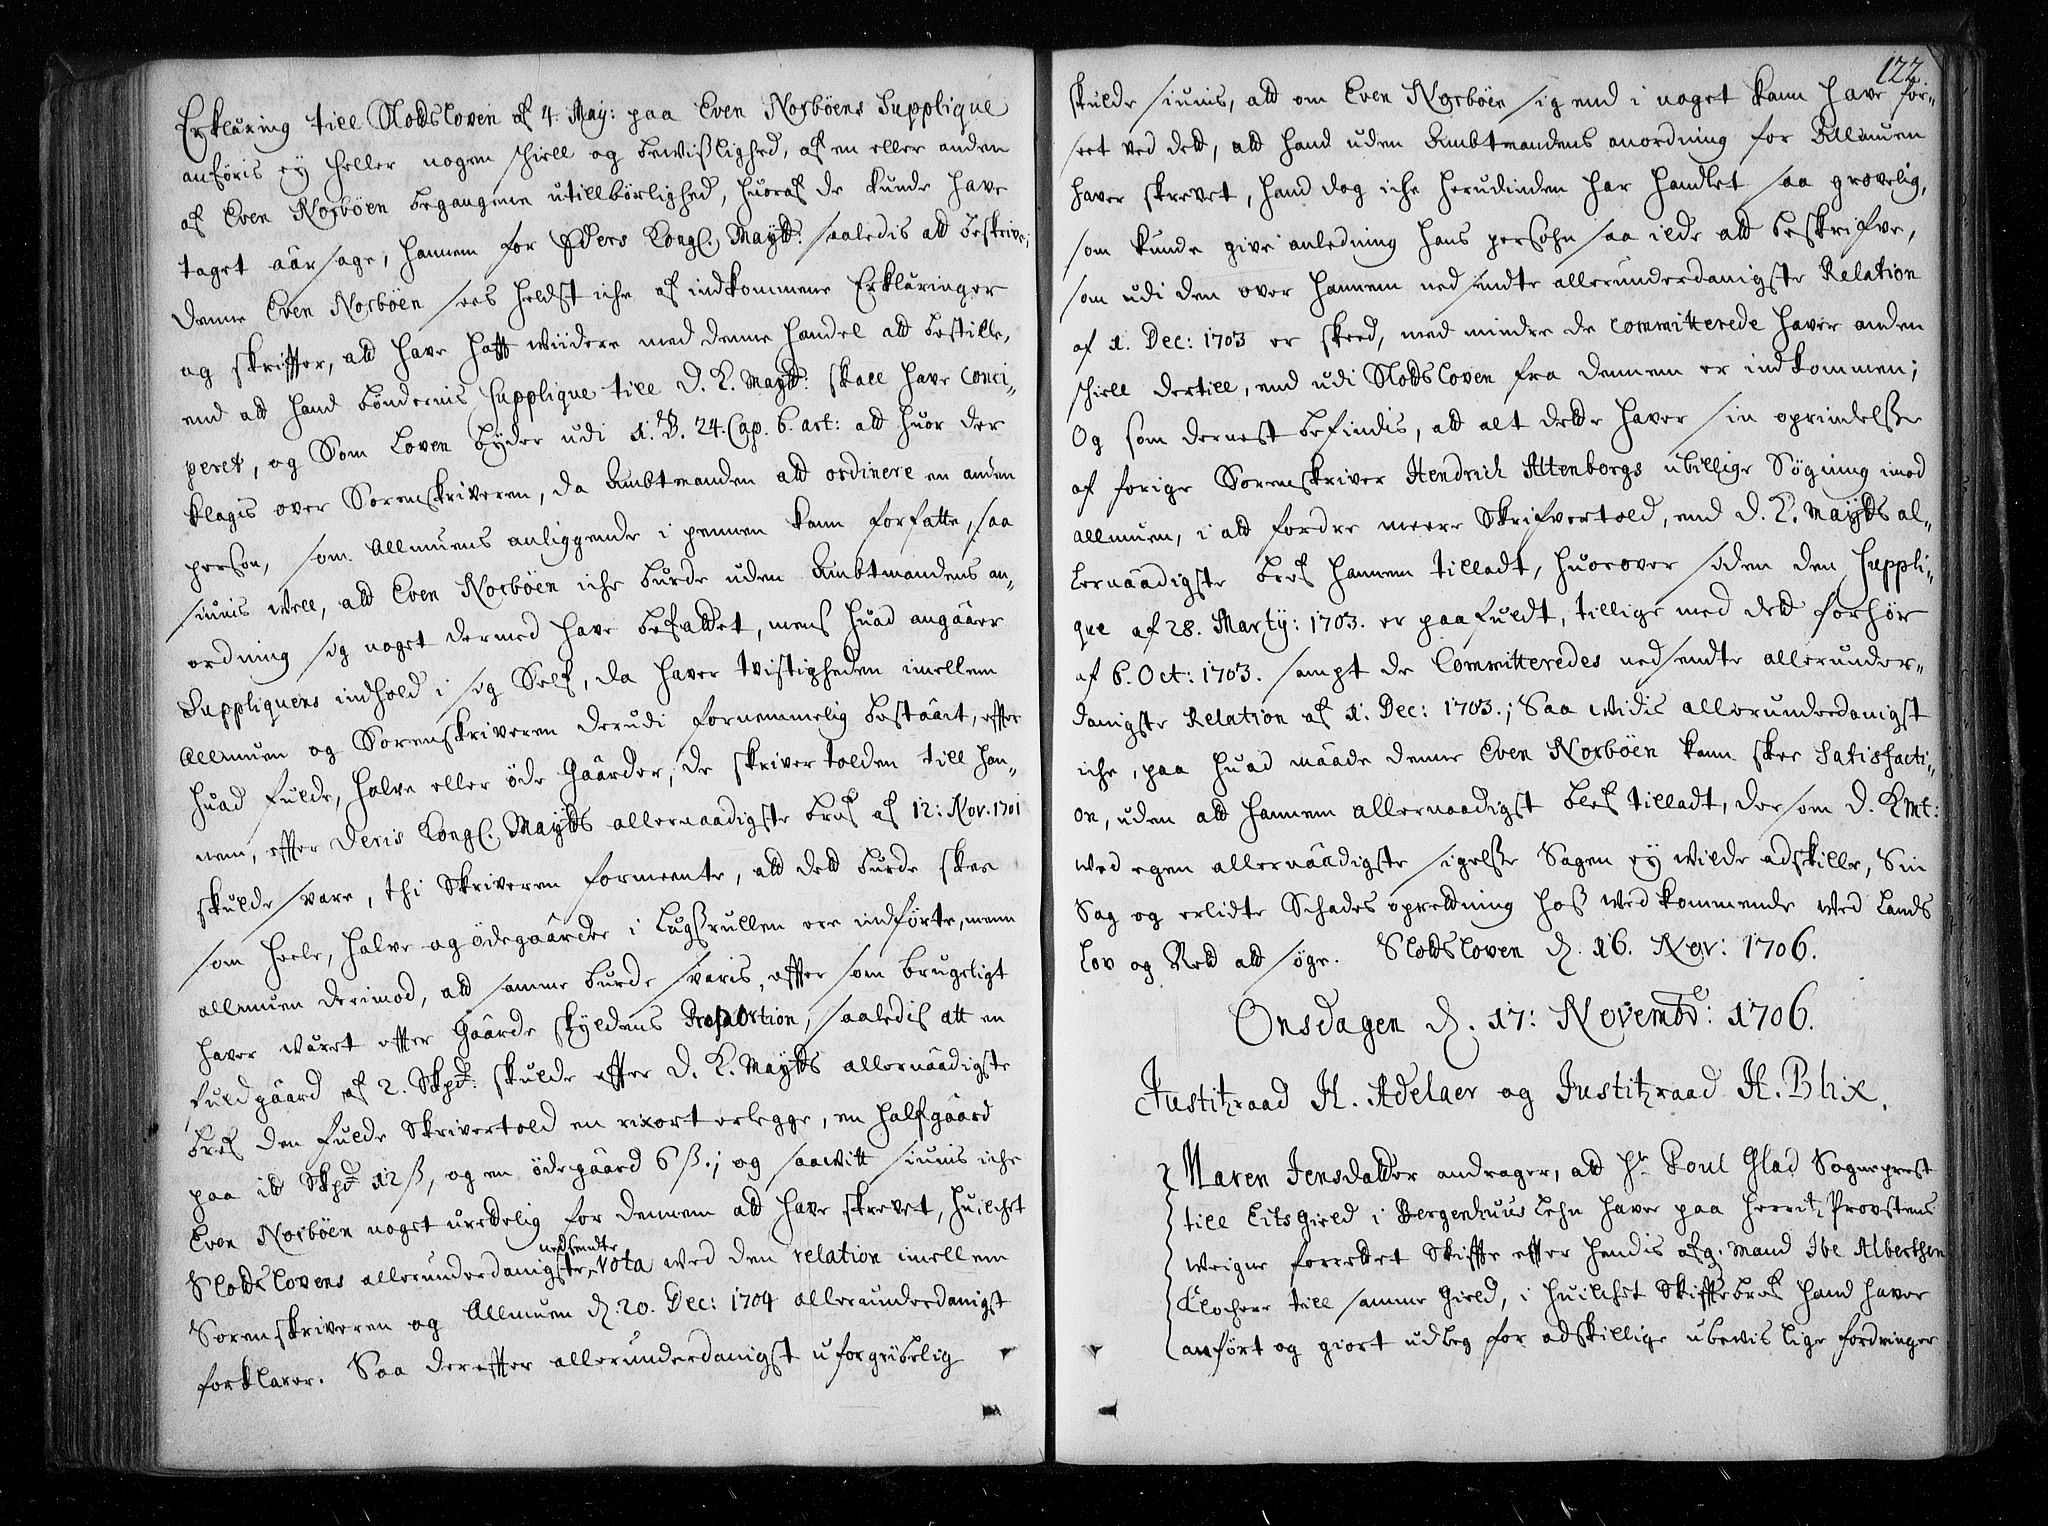 Erkläring till Slodsloven af 4. May: paa Even Norböens Supplique
anföris ey heller nogen schiell og bewißlighed, af en eller anden
af Even Norböen begangene utillbörlighed, huoraf de kunde have
taget aarsage, hannem for Eders Kongl. Maytt: saaledis att beskrive;
denne Even Norböen sees heldst iche af indkomne Erkläringer
og skriffter, att have hafft wiidere med denne handel att bestille,
end att hand böndernis Supplique till D. K. Maytt: skall have conci-
peret, og som Loven byder udi 1. B. 24. Cap. 6. art: att huor der
klagis over Sorenskriveren, da Ambtmanden att ordinere en anden
person, som Allmuens anliggende i pennen kann forfatte, saa
siunis well, att Even Norböen iche burde uden Ambtmandens an-
ordning sig noget dermed have befattet, mens huad angaaer
Suppliquens indhold i sig Self, da haver tvistigheden imellem
Allmuen og Sorenskriveren derudi fornemmelig bestaait, effter
huad fulde, halve eller öde Gaarder, de skrivertolden till han-
nem, effter Deris Kongl. Maytts allernaadigste bref af 12: Nov. 1701
skulde svare, thi Skriveren formeente, att dett burde skee
som heele, halve og ödegaarde i Lugßrullen ere indförte, menn
allmuen derimod, att samme burde svaris, effter som brugeligt
haver wäret effter Gaarde skyldens Proportion, saaledis att en
fuldgaard af 2. Skpd: skulde effter D. K. Maytts allernaadigste
bref den fulde Skrivertold en rixort erlegge, en halfgaard
paa itt Skpd 12 ß, og en ödegaard 6 ß.; og saawitt siunis iche
Even Norböen noget urettelig for dennem att have skrevet, huilchet
Slodslovens allerunderdanigste nedsendte Vota wed den relation imellem
Sorenskriveren og Allmuen d. 20. Dec: 1704 allerunderdanigst
forklarer. Saa dereffter allerunderdanigst uforgribelig
122.
skulde siunis, att om Even Norböen sig end i noget kann have for-
seet ved dett, att hand uden Ambtmandens anordning for Allmuen
haver skrevet, hand dog iche herudinden har handlet saa grovelig,
som kunde give anledning hans persohn saa ilde att beskrifve,
som udi den over hannem nedsendte allerunderdanigste Relation
af 1. Dec: 1703 er skeed, med mindre de committerede haver anden
schiell dertill, end udi Slodsloven fra dennem er indkommen;
Og som dernest befindis, att alt dette haver sin oprindelse
af forige Sorenskriver Hendrich Altenborgs ubillige Sögning imod
allmuen, i att fordre meere Skrifvertold, end D. K. Maytts al-
lernaadigste bref hannem tilladt, huorover siden den Suppli-
que af 28. Marty: 1703. er paafuldt, tillige med dett forhör
af 6. Oct: 1703. sampt de Committeredes nedsendte allerunder-
danigste Relation af 1. Dec: 1703.; Saa widis allerunderdanigst
iche, paa huad maade denne Even Norböen kann skee Satisfacti-
on, uden att hannem allernaadigst blef tilladt, dersom D. K Mt:
wed egen allernaadigste sigelse Sagen ey wilde adskille, Sin
Sag og erlidte Schades oprettning hoß wedkommende wed Lands
Lov og Rett att söge. Slodsloven d. 16. Nov: 1706.
Onsdagen d. 17: Novembr: 1706.
Justitzraad H. Adelaer og Justitzraad H. Blix.
Maren Jensdatter andrager, att Hr Poul Glad Sogneprest
till Eitsgield i Bergenhuus Lehn haver paa Herritz Provstens
weigne forrettet Skiffte effter hendis afg. Mand Ibe Alberthsen
Klocher till samme Gield, i huilchet Skifftebref hand haver
anfört og giort udleg for adskillige ubevislige fordringer